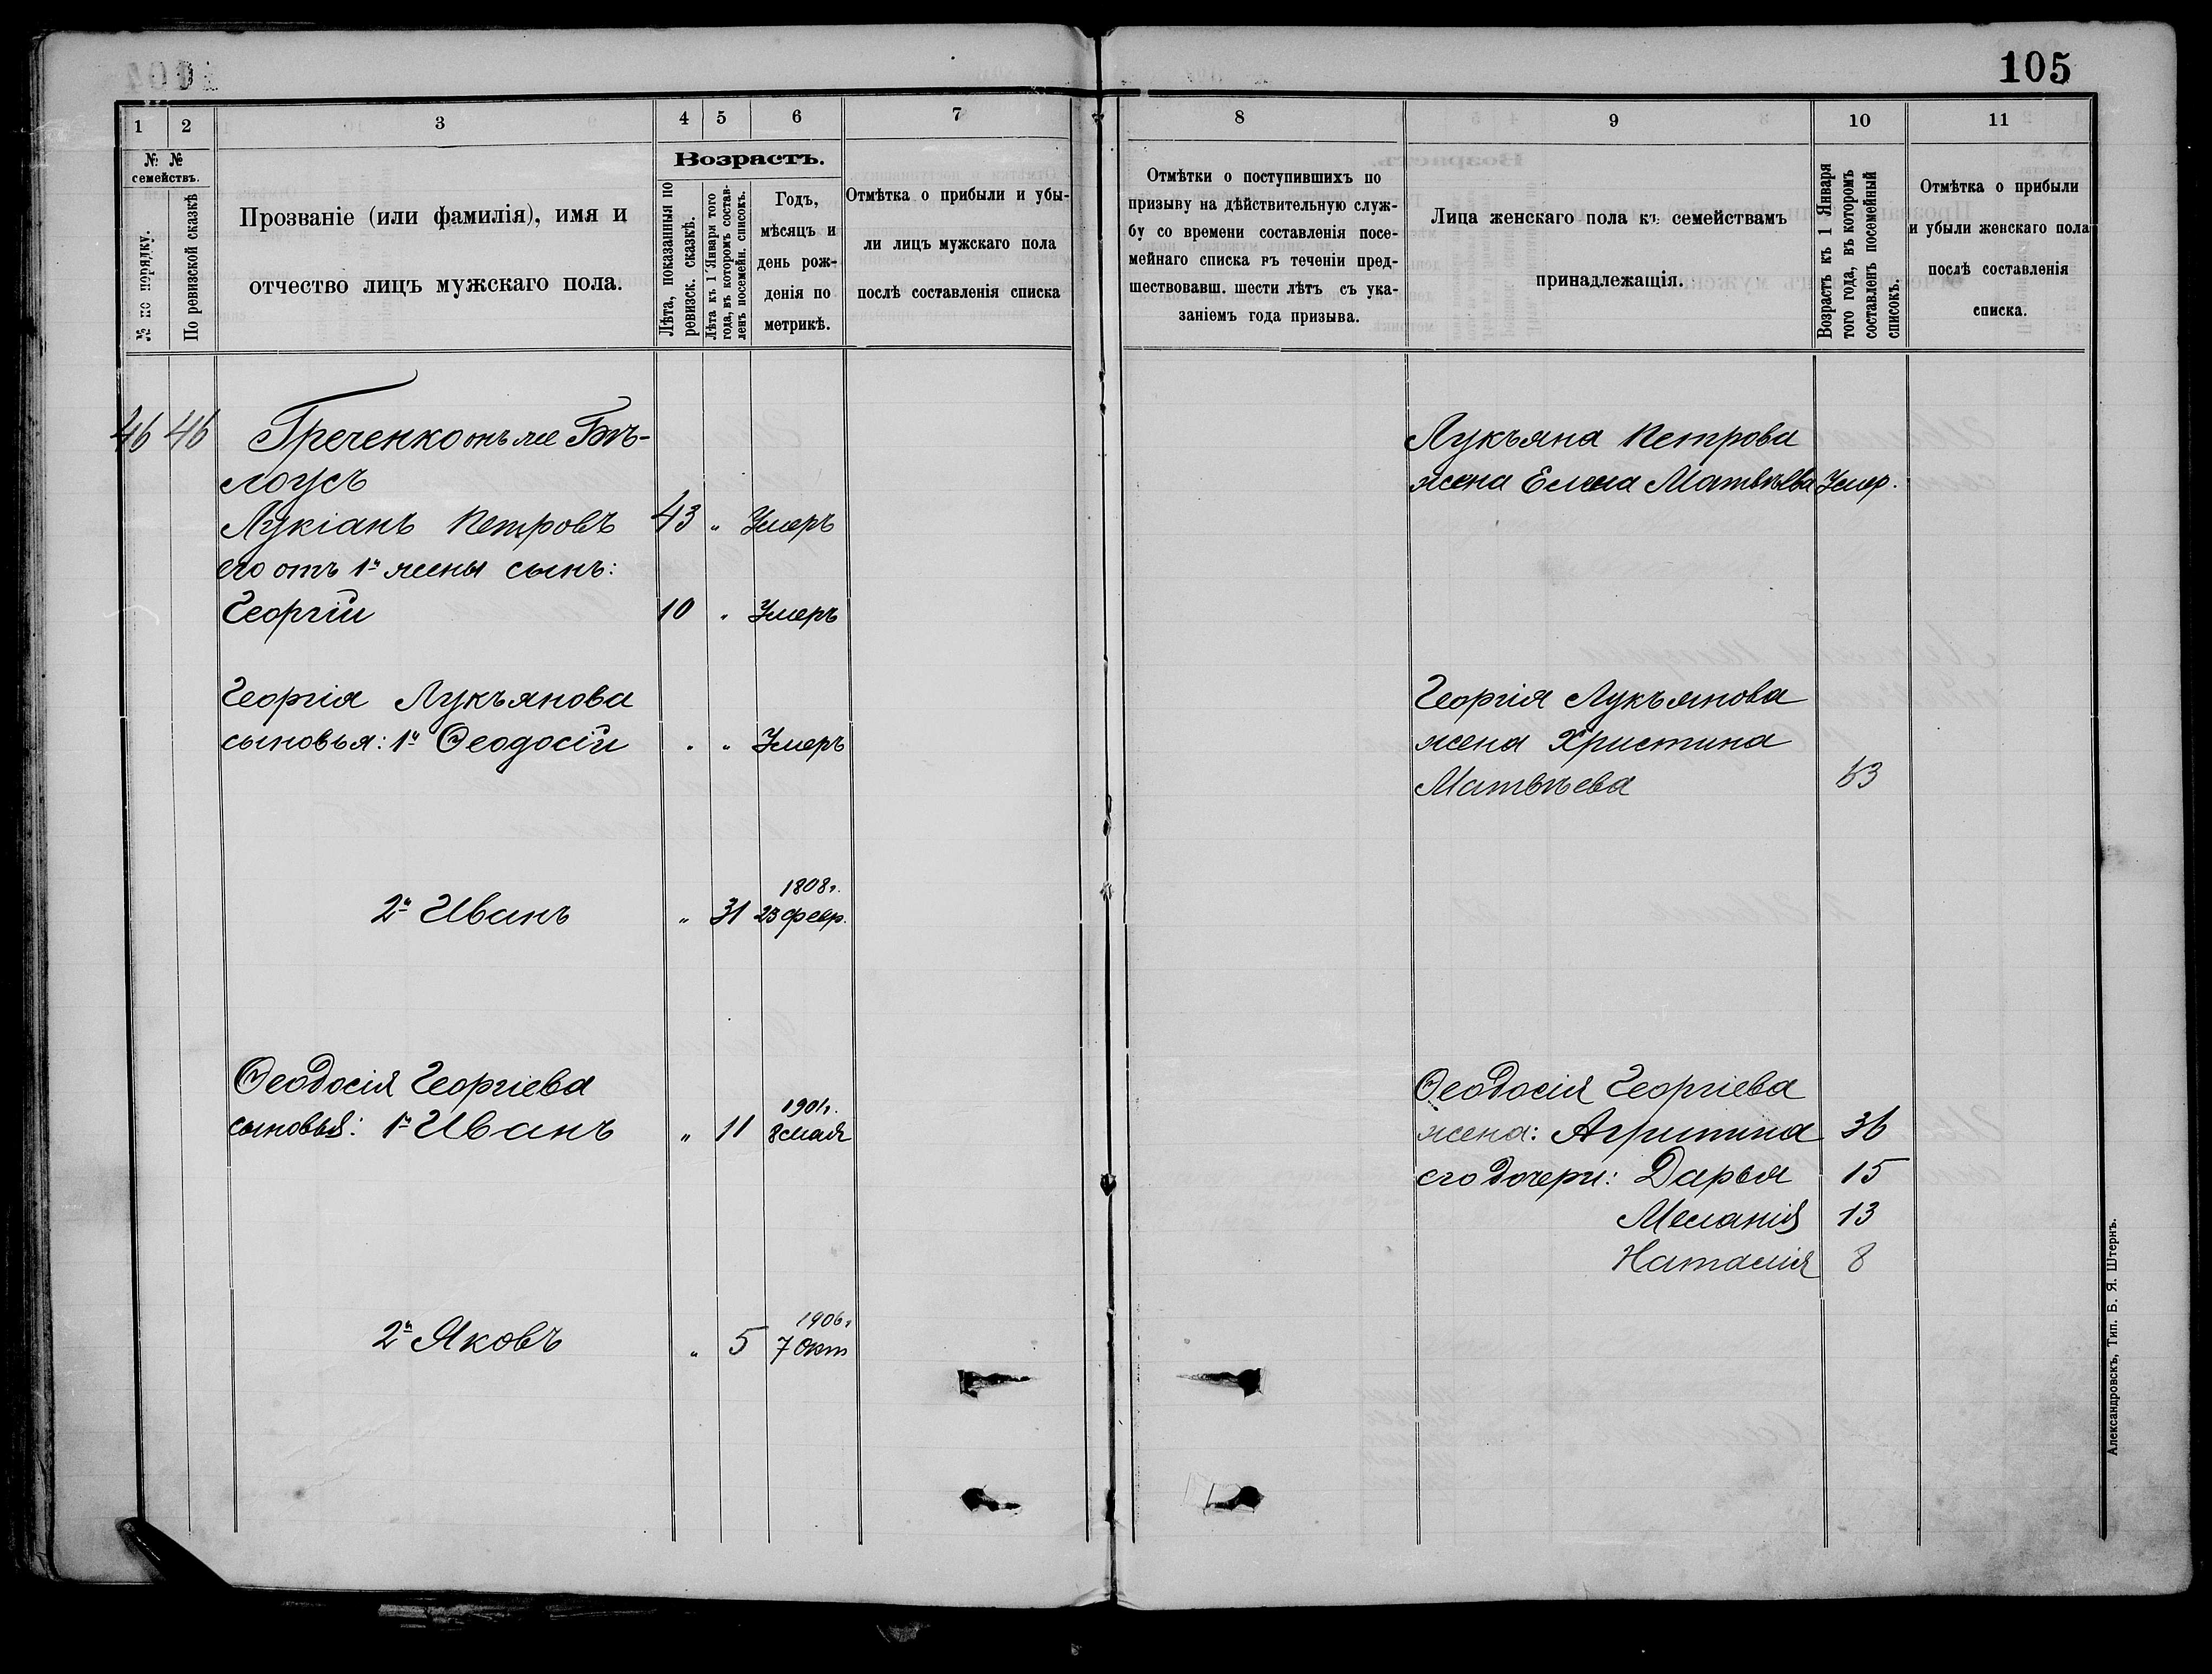 105
1 2 3 4 5 6 7
№ № семействъ.
№ по порядку.
По ревизской сказкѣ
Прозваніе (или фамилія), имя и
отчество лицъ мужскаго пола.
Возрастъ.
Лѣта, показанныя по
ревизск. сказкѣ.
Лѣта къ 1 Января того
года, въ которомъ состав-
ленъ посемейн. списокъ.
Годъ,
мѣсяцъ и
день рож-
денія по
метрикѣ.
Отмѣтка о прибыли и убы-
ли лицъ мужскаго пола
послѣ составленія списка
46 46 Греченко онъ же Бѣ-
лоусъ
Лукіанъ Петровъ 43 " Умеръ
его отъ 1й жены сынъ:
Георгій 10 " Умеръ
Георгія Лукъянова
сыновья: 1й Ѳеодосій " " Умеръ
1808г.
2й Иванъ " 31 23 февр.
Ѳеодосія Георгіева
1901г.
сыновья: 1й Иванъ " 11 8 мая
1906г
2й Яковъ " 5 7 Окт
8 9 10 11
Отмѣтки о поступившихъ по
призыву на дѣйствительную служ-
бу со времени составленія посе-
мейнаго списка въ теченіи пред-
шествовавш. шести лѣтъ съ ука-
заніемъ года призыва.
Лица женскаго пола къ семействамъ
принадлежащія.
Возрастъ къ 1 Января
того года, въ которомъ
составленъ посемейный
списокъ.
Отмѣтка о прибыли
и убыли женскаго пола
послѣ составленія
списка.
Лукъяна Петрова
жена Елена Матвѣева Умер.
Георгія Лукъянова
жена Христина
Матвѣева 63
Ѳеодосія Георгіева
жена: Агрипина 36
его дочери: Дарья 15
Меланія 13
Наталія 8
Александровскъ, Тип. Б. Я. Штернъ.